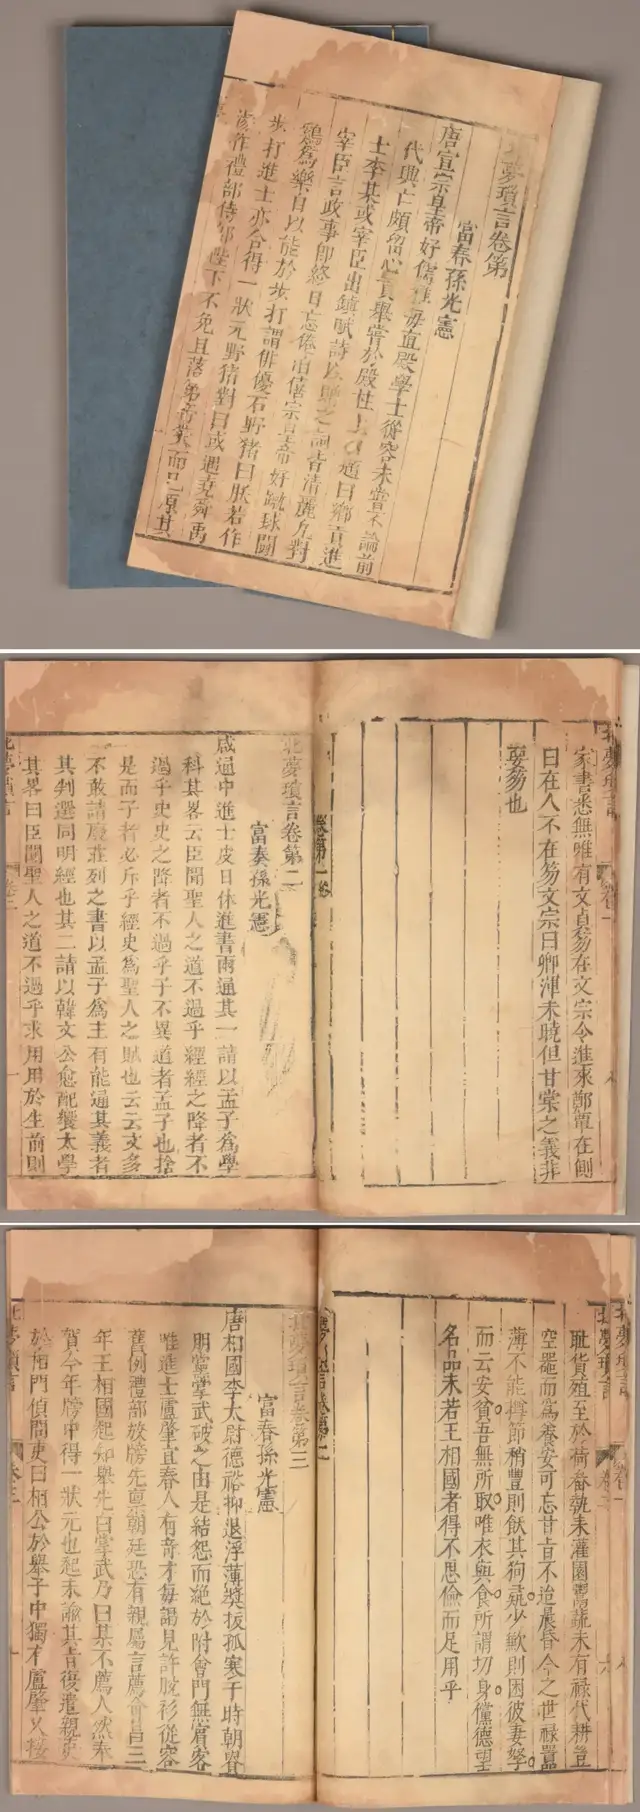 夢瑣言卷第
富春孫光憲
唐宣宗皇帝好儒雅每直殿學士從容未嘗不論前
代興亡頗留心貢舉嘗於殿柱上自題曰鄉貢進
士李某或宰臣出鎮賦詩以贈之詞皆清麗凡對
宰臣言政事即終日忘倦洎僖宗皇帝好蹴球鬪
鷄為樂自以能於步打謂俳優石野猪曰朕若作
步打進士亦合得一狀元野猪對曰或遇堯舜禹
湯作禮部侍郎陛下不免且落第帝笑而已原其
北夢瑣言
卷一
家書悉無唯有文貞笏在文宗令進來鄭覃在側
曰在人不在笏文宗曰卿渾未曉但甘棠之義非
要笏也
卷第一
北夢瑣言卷第二
富春孫光憲
咸通中進士皮日休進書兩通其一請以孟子為學
科其畧云臣聞聖人之道不過乎經經之降者不
過乎史史之降者不過乎子不異道者孟子也捨
是而子者必斥乎經史為聖人之賊也云云文多
不敢請廢莊列之書以孟子為主有能通其義者
其科選同明經也其二請以韓文公愈配饗太學
其畧曰臣聞聖人之道不過乎求用用於生前則
北夢瑣言
卷二
一
北夢瑣言
卷二
耻貨殖至於荷畚執耒灌園鬻蔬未有祿代耕豈
空罷而為養安可忘甘旨不迨晨昏今之世祿囂囂
薄不能撙節稍豐則飫其狗彘少歉則困彼妻孥
而云安貧吾無所取唯衣與食所謂切身儻德望
名品未若王相國者得不思儉而足用乎
北夢瑣言卷第三
富春孫光憲
唐相國李太尉德裕抑退浮薄獎拔孤寒于時朝貴
朋黨掌武破之由是結怨而絶於附會門無賓客
唯進士盧肇宜春人有奇才每謁見許脫衫從容
舊例禮部放牓先禀朝廷恐有親屬言薦會昌三
年王相國起知舉先白掌武乃曰某不薦人然奉
賀今年牓中得一狀元也起未諭其旨復遣親吏
於相門偵問吏曰相公於舉子中獨有盧肇久接
北夢瑣言
卷三
一